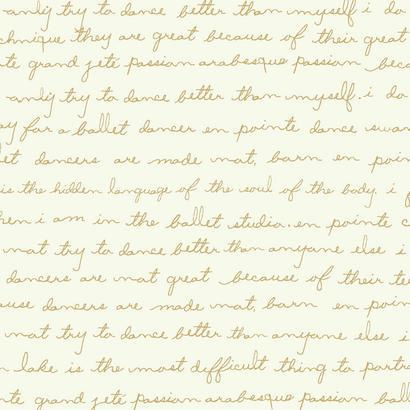 only try to dance better than myself. i do
chnique they are great because of their great
te grand jete passion arabesque passion beca
only try to dance better than myself. i do
ay for a ballet dancer en pointe dance swan
et dancers are made not, born en poin
is the hidden language of the soul of the body. i
hen i am in the ballet studio. en pointe c
not try to dance better than anyone else i
dancers are not great because of their te
ause dancers are made not, born en poin
not try to dance better than anyone else i
n lake is the most difficult thing to portra
te grand jete passion arabesque passion ball